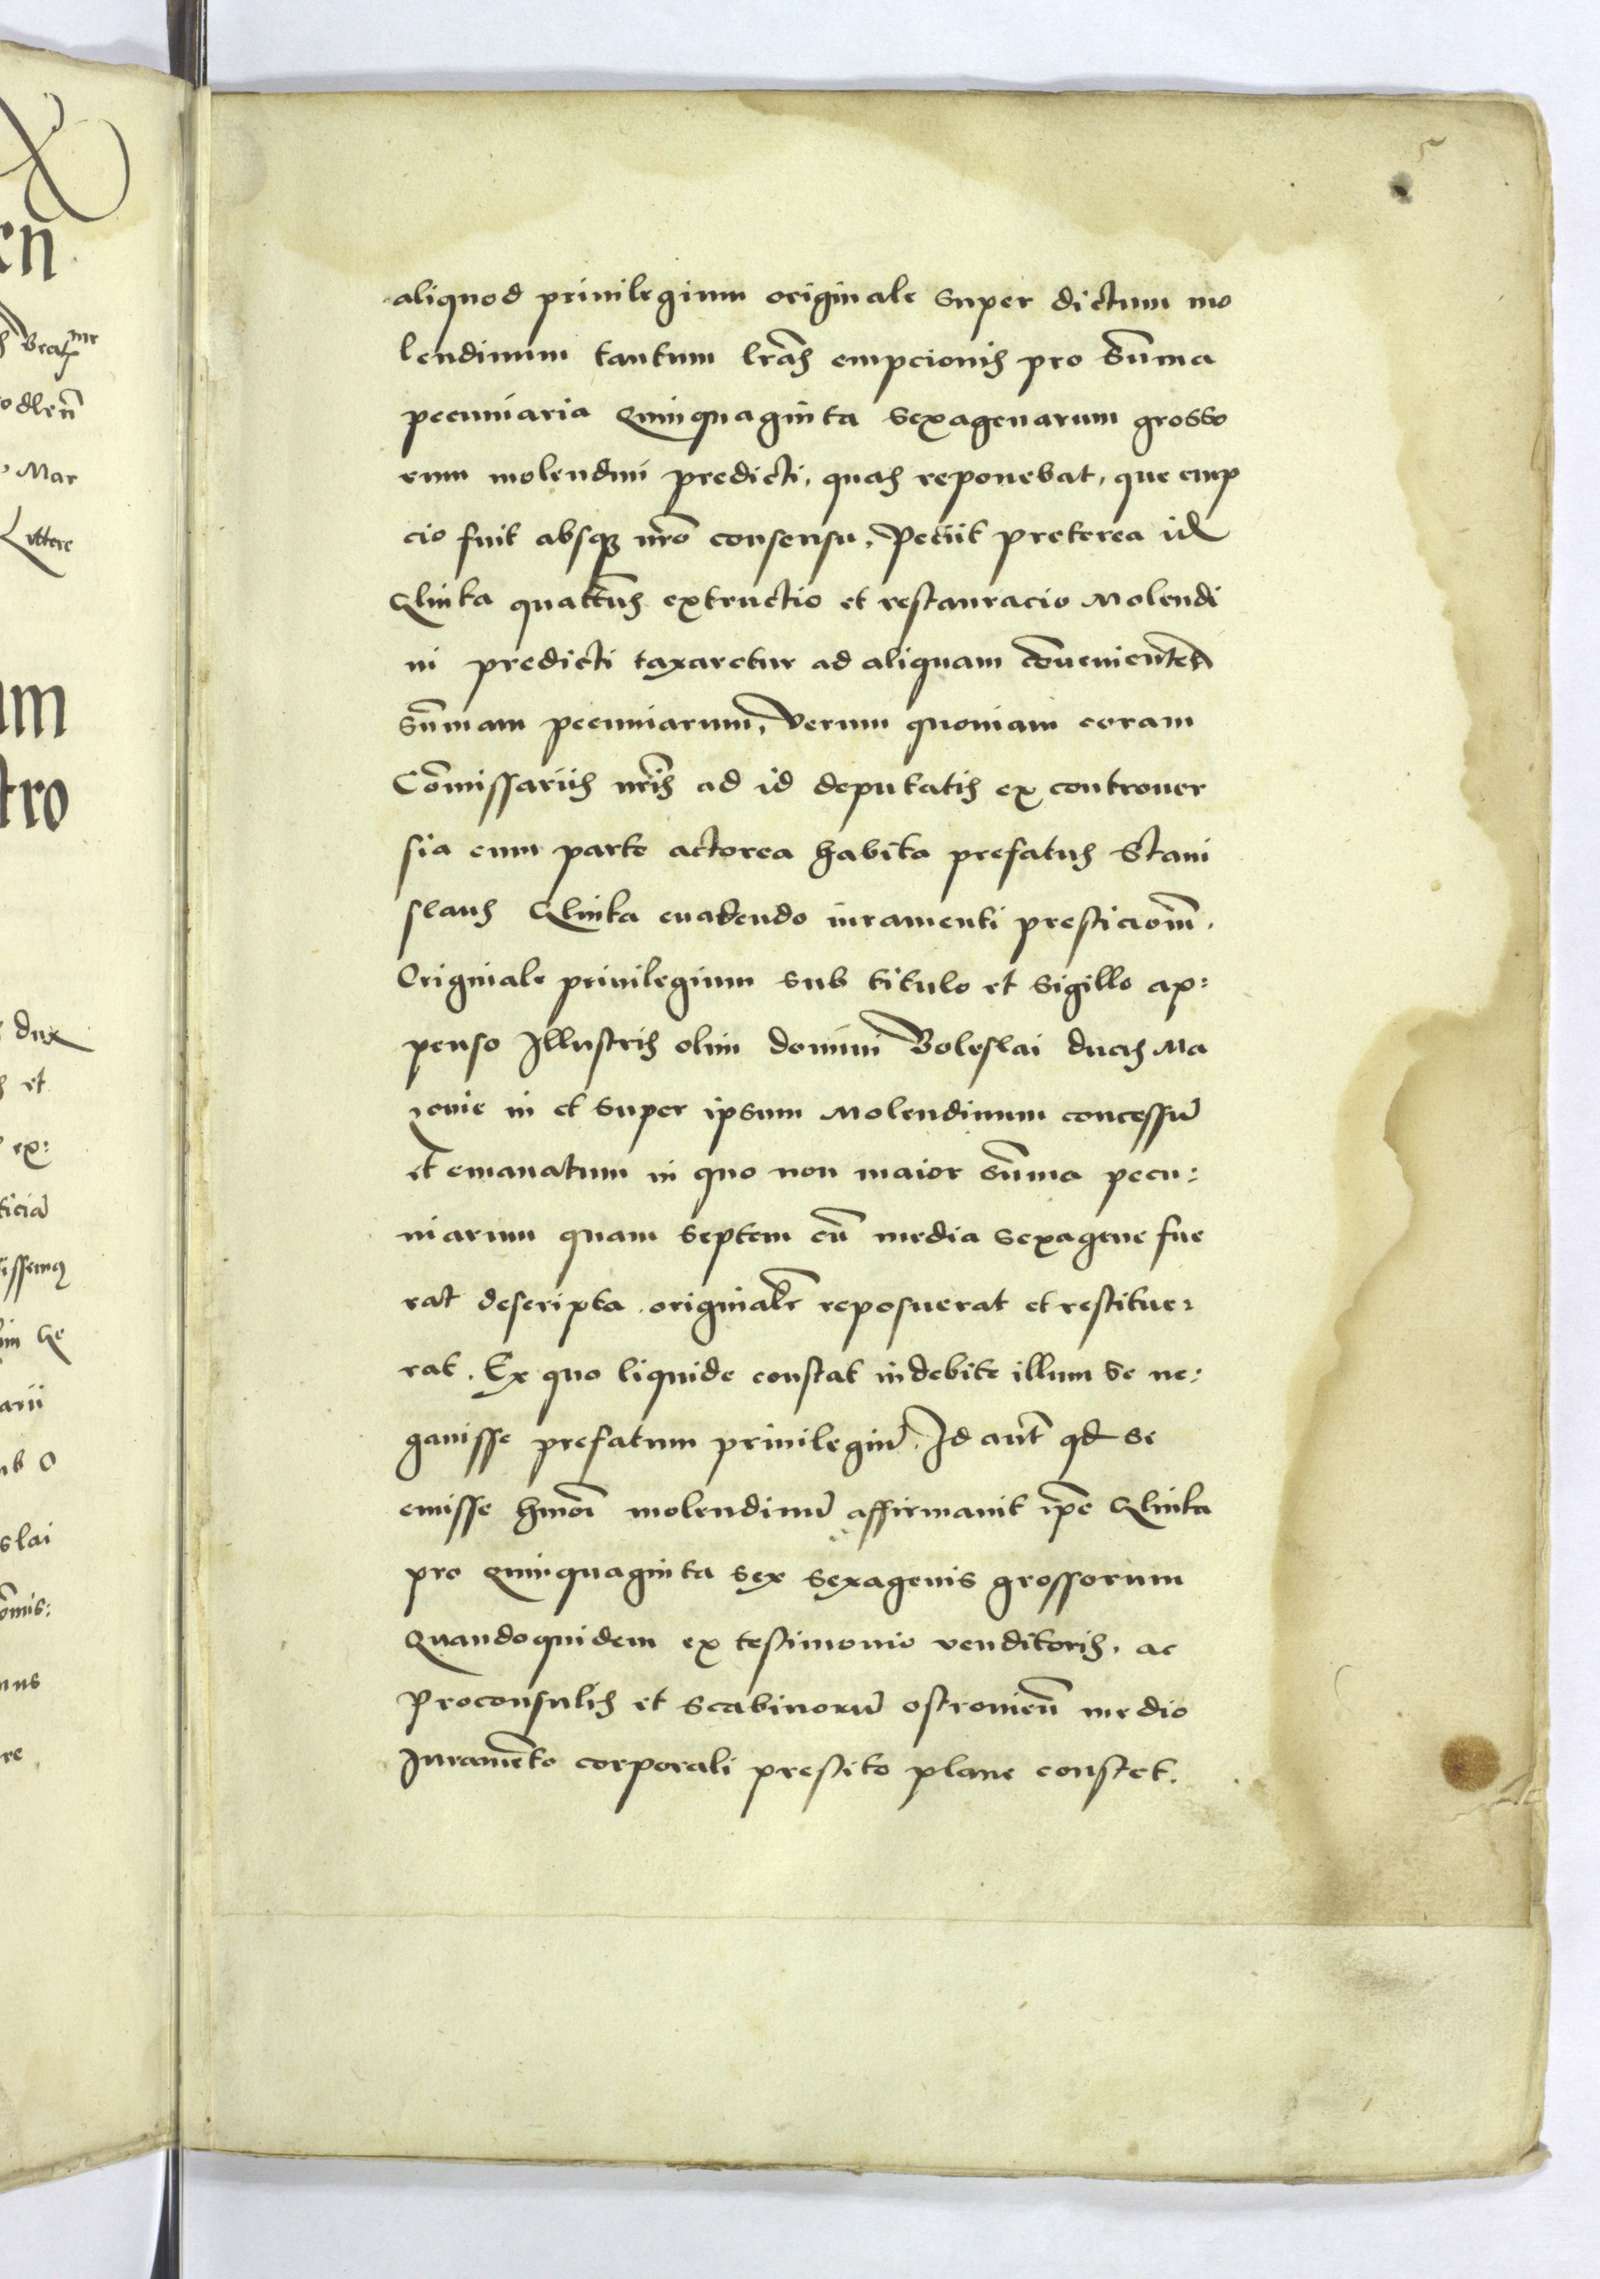 5
aliquod priuilegium originale super dictum mo
lendinum tantum lr̃as empcionis pro Sum̃a
pecuniaria Quinquaginta sexagenarum grosso
rum molendini predicti, quas reponebat, que emp
cio fuit absqꝫ nr̃o consensu, Petiit preterea id
Glinka quat̃tus extructio et restauracio Molendi
ni predicti taxaretur ad aliquam cōuenientem
Sum̃am pecuniarum, Verum quoniam coram
Com̃issariis nr̃is ad id deputatis ex controuer
sia cum parte actorea habita prefatus Stani
slaus Glinka euadendo iuramenti presticionem̃.
Originale priuilegium sub titulo et sigillo ap:
penso Illustris olim domini Boleslai ducis Ma
zouie in et super ipsum Molendinum concessũ
et emanatum in quo non maior Sum̃a pecu:
niarum quam septem cũ media sexagene fue
rat descripta originalr̃ reposuerat et restitue:
rat. Ex quo liquide constat indebite illum se ne:
gauisse prefatum priuilegiũ. Id aut̃ qd se
emisse hmoi molendinũ affirmauit ip̃e Glinka
pro Quinquaginta sex sexagenis grossorum
Quandoquidem ex testimonio venditoris, ac
Proconsulis et Scabinorũ ostrouien̄ medio
Iuramẽto corporali prestito plane constet.
en
o dlen̄
Mar
Littere
um
tro
dux
et
ex:
ticiã
arii
ub O
slai
om̃is:
nus
re